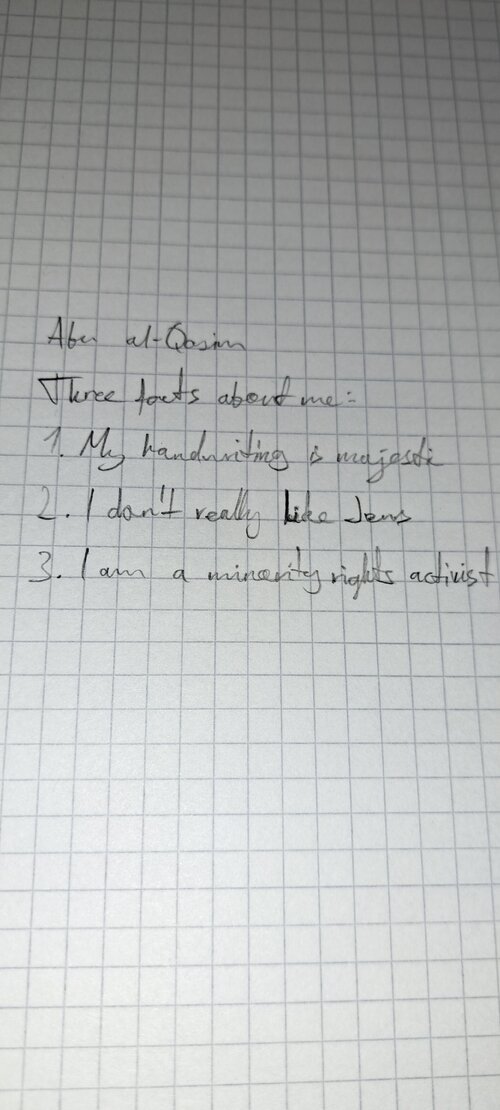 Abu al-Qasim
Three facts about me:
1. My handwriting is majestic
2. I don't really like Jews
3. I am a minority rights activist